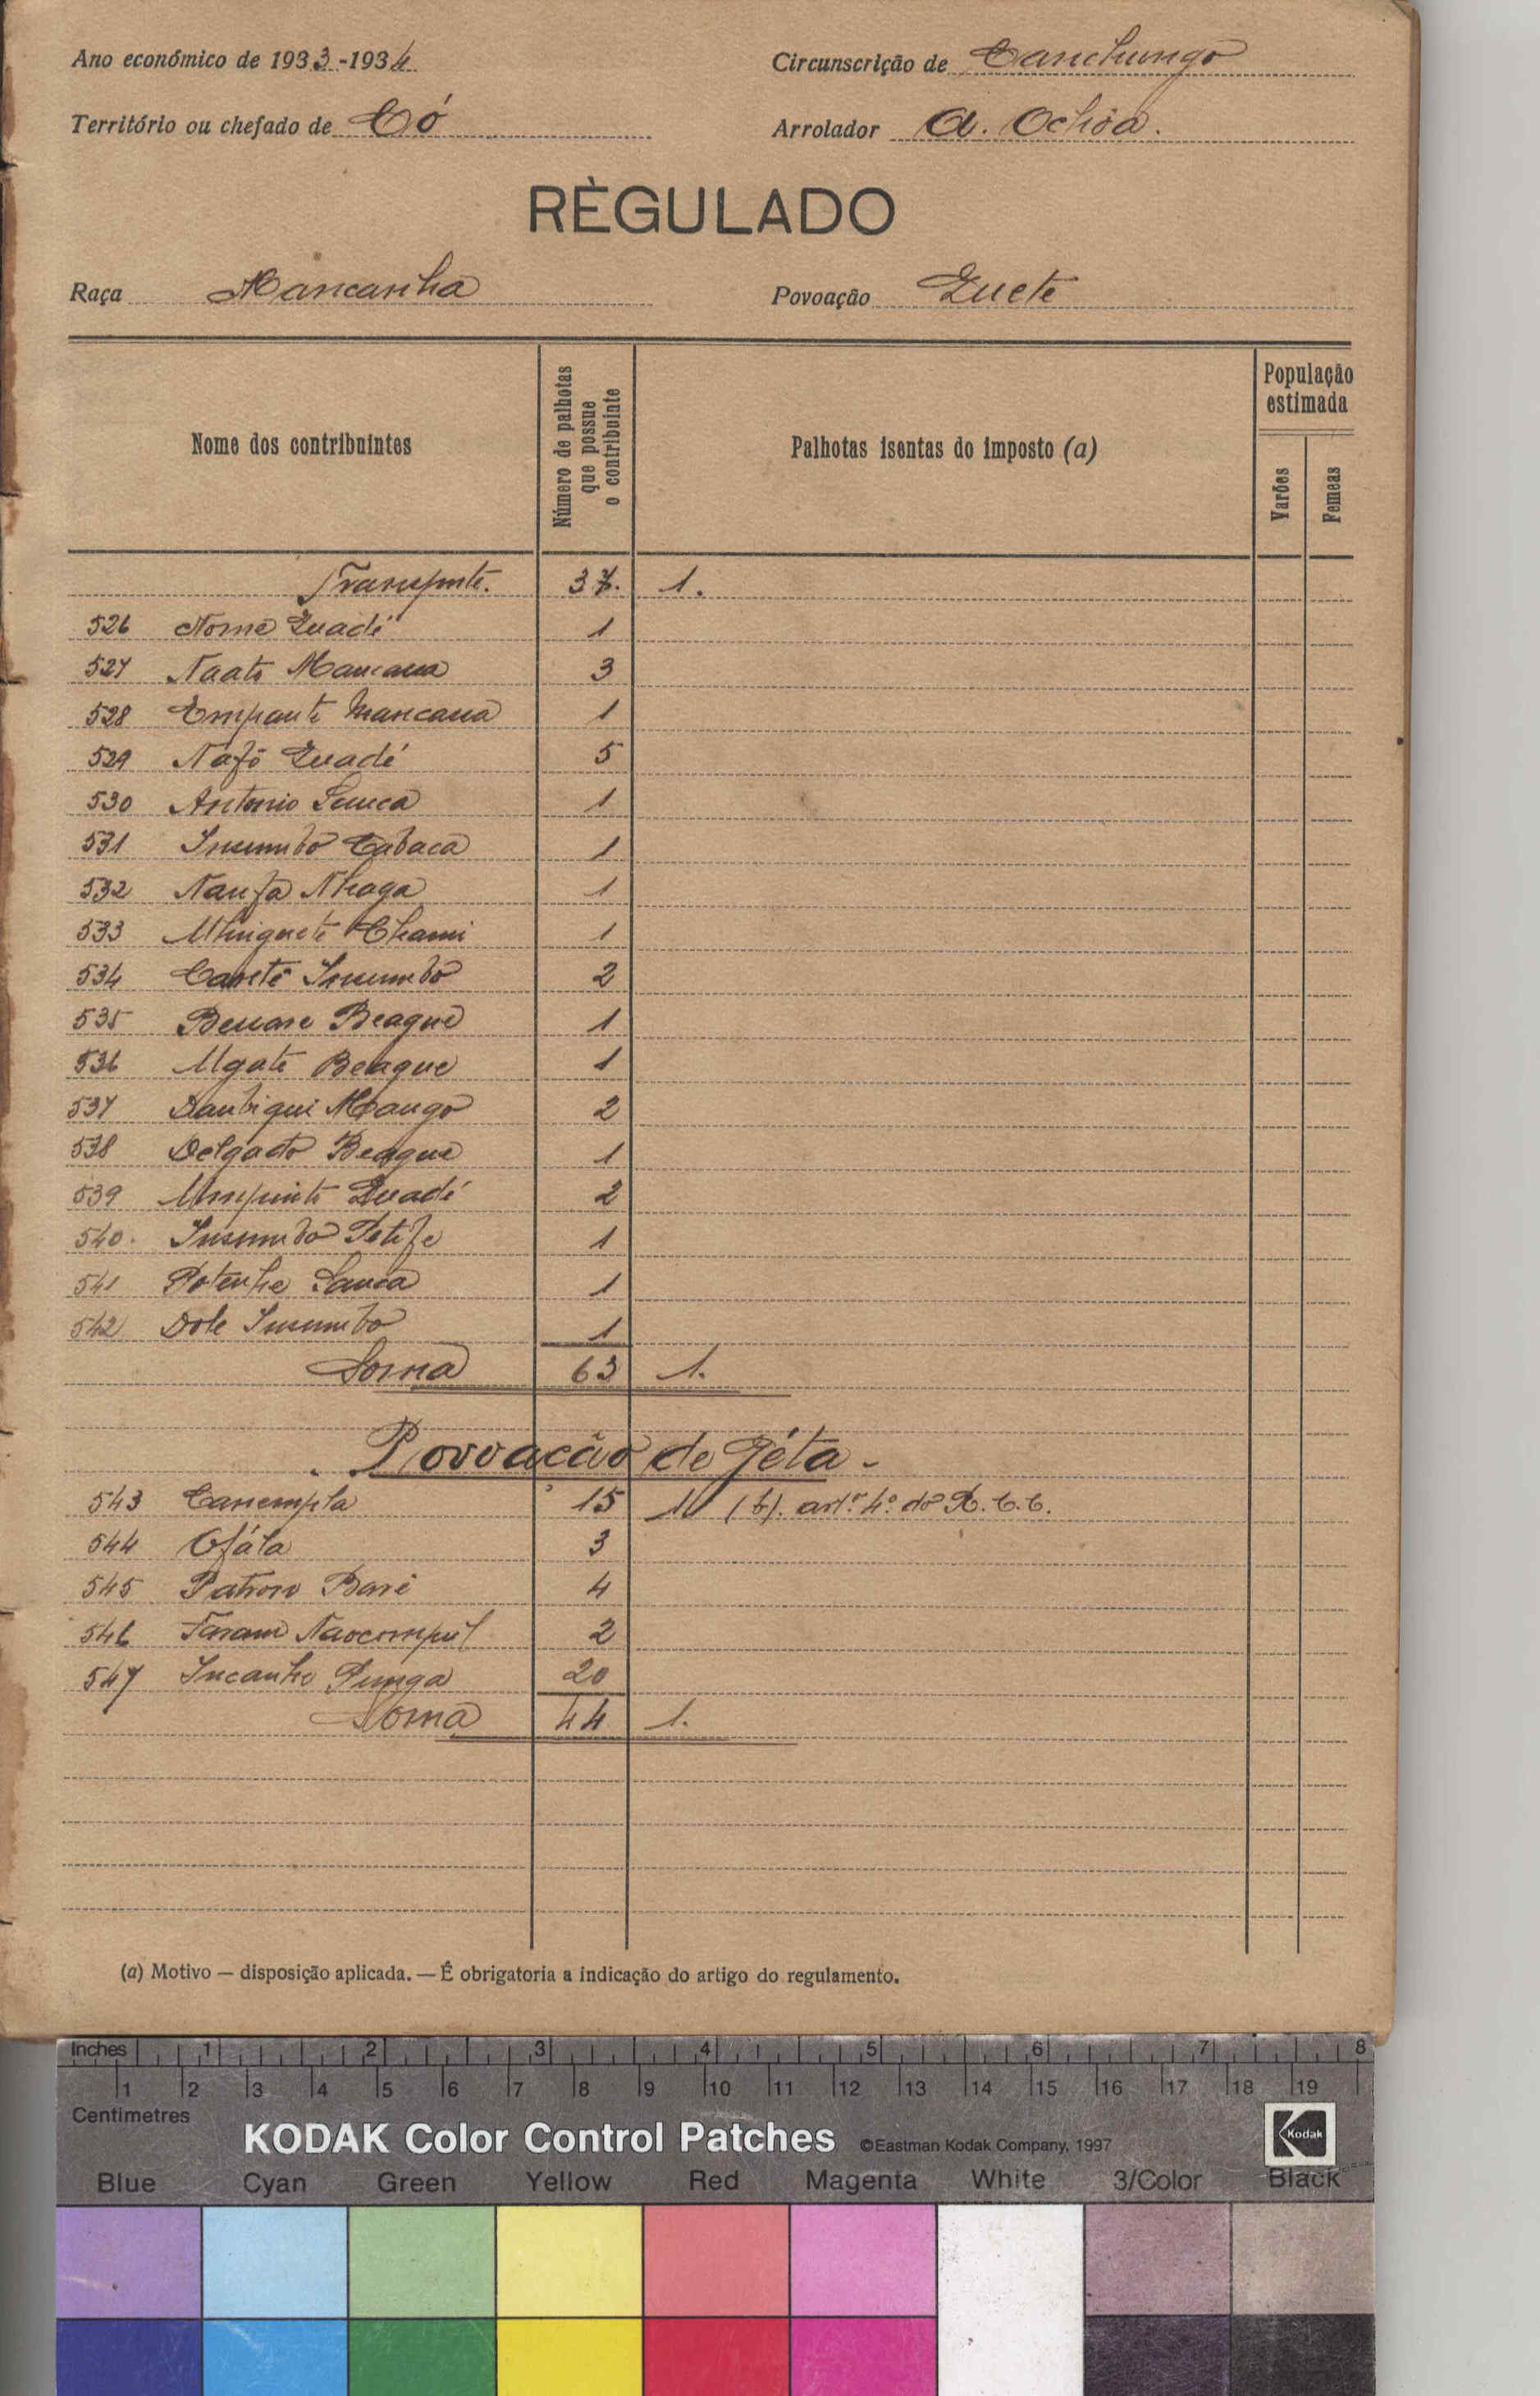 Ano económico de 1933-1934 Circunscrição de Canchungo
Território ou chefado de Có Arrolador A. Ochôa.
RÈGULADO
Raça Mancanha Povoação Quete
Nome dos contribuintes
Número de palhotas que possue o contribuinte
Palhotas isentas do imposto (a)
População estimada
Varões
Femeas
Transporte. 37. 1.
526 Nome Quadé 1
527 Naato Mancana 3
528 Empante Mancana 1
529 Nafô Quadé 5
530 Antonio Sanca 1
531 Insumbo Cabaca 1
532 Naufa Nhaga 1
533 Chami 1
534 Insumbo 2
535 Beague 1
536 Ugate Beague 1
537 Mango 2
538 Delgado Beague 1
539 Umpinte Quadé 2
540. Insumbo 1
541 Potenhe Sanca 1
542 Dole Insumbo 1
Soma 63 1.
Povoacão de Géta -
543 Canempla 15 1 (b). artº. 4º do R. C. C.
544 Ofála 3
545 Patrono Baré 4
546 2
547 Incanho Punga 20
Soma 44 1.
(a) Motivo — disposição aplicada. — É obrigatoria a indicação do artigo do regulamento.
Inches 1 2 3 4 5 6 7 8
1 2 3 4 5 6 7 8 9 10 11 12 13 14 15 16 17 18 19
Centimetres
KODAK Color Control Patches ©Eastman Kodak Company, 1997 Kodak
Blue Cyan Green Yellow Red Magenta White 3/Color Black